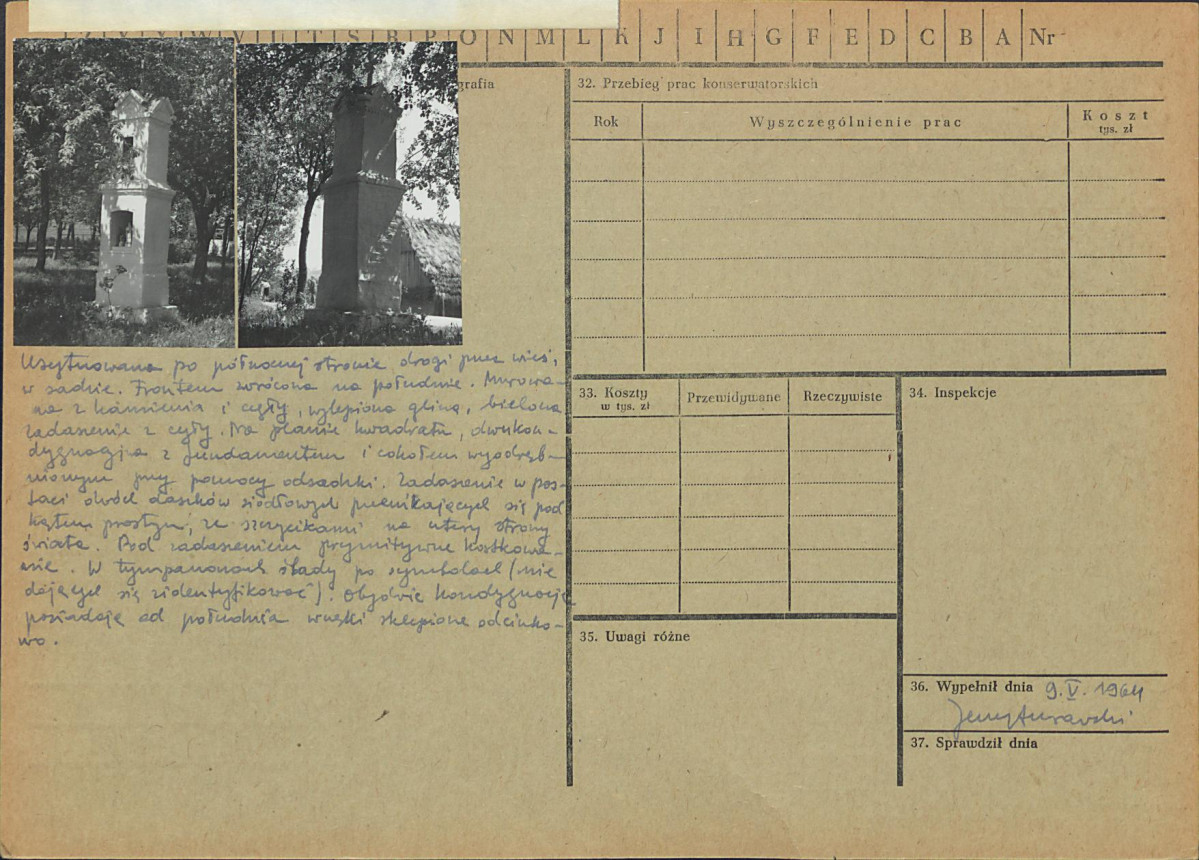 T S R P O N M L K J I H G F E D C B A Nr
grafia
Usytuowana po północnej stronie drogi przez wieś,
w sadzie. Frontem zwrócona na południe. Murowa-
na z kamienia i cegły, wylepiona gliną, bielona
zadaszenie z cegły. Na planie kwadratu, dwukon-
dygnacyjna z fundamentem i cokołem wyodręb-
nionym przy pomocy odsadzki. Zadaszenie w pos-
taci dwóch daszków siodłowych przenikających się pod
kątem prostym, ze szczycikami na cztery strony
świata. Pod zadaszeniem prymitywne kostkowa-
nie. W tympanonach ślady po symbolach (nie
dających się zidentyfikować). Obydwie kondygnacje
posiadają od południa wnęki sklepione odcinko-
wo.
32. Przebieg prac konserwatorskich
Rok Wyszczególnienie prac Koszt
tys. zł
33. Koszty
w tys. zł
Przewidywane Rzeczywiste
34. Inspekcje
35. Uwagi różne
36. Wypełnił dnia 9.V.1964
37. Sprawdził dnia